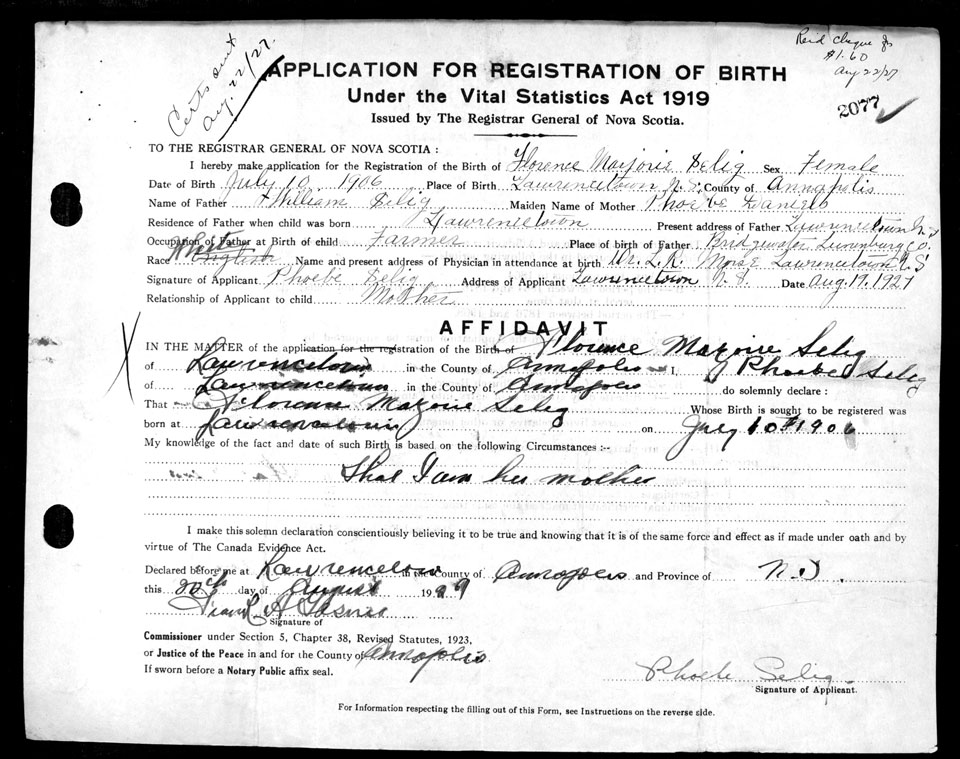 Certs sent
Aug. 22/27.
Reid cheque for
$1.60
Aug 22/27
2077
APPLICATION FOR REGISTRATION OF BIRTH
Under the Vital Statistics Act 1919
Issued by The Registrar General of Nova Scotia.
TO THE REGISTRAR GENERAL OF NOVA SCOTIA:
I hereby make application for the Registration of the Birth of Florence Marjorie Selig Sex Female
Date of Birth July 10, 1906 Place of Birth Lawrencetown N.S. County of Annapolis
Name of Father William Selig Maiden Name of Mother Phoebe Daniels
Residence of Father when child was born Lawrencetown Present address of Father Lawrencetown N.S
Occupation of Father at Birth of child Farmer Place of birth of Father Bridgewater Lunenburg Co.
White
Race English Name and present address of Physician in attendance at birth Dr. L.R. Morse Lawrencetown N.S
Signature of Applicant Phoebe Selig Address of Applicant Lawrencetown N.S. Date Aug. 19. 1927
Relationship of Applicant to child Mother
AFFIDAVIT
IN THE MATTER of the application for the registration of the Birth of Florence Marjorie Selig
of Lawrencetown in the County of Annapolis I, Phoebe Selig
of Lawrencetown in the County of Annapolis do solemnly declare:
That Florence Marjorie Selig Whose Birth is sought to be registered was
born at Lawrencetown on July 10th 1906
My knowledge of the fact and date of such Birth is based on the following Circumstances:--
That I am her mother
I make this solemn declaration conscientiously believing it to be true and knowing that it is of the same force and effect as if made under oath and by
virtue of The Canada Evidence Act.
Declared before me at Lawrencetown in the County of Annapolis and Province of N.S.
this 20th day of August 19
Frank A
Signature of
Commissioner under Section 5, Chapter 38, Revised Statutes, 1923,
or Justice of the Peace in and for the County of Annapolis
If sworn before a Notary Public affix seal.
Phoebe Selig.
Signature of Applicant.
For Information respecting the filling out of this Form, see Instructions on the reverse side.